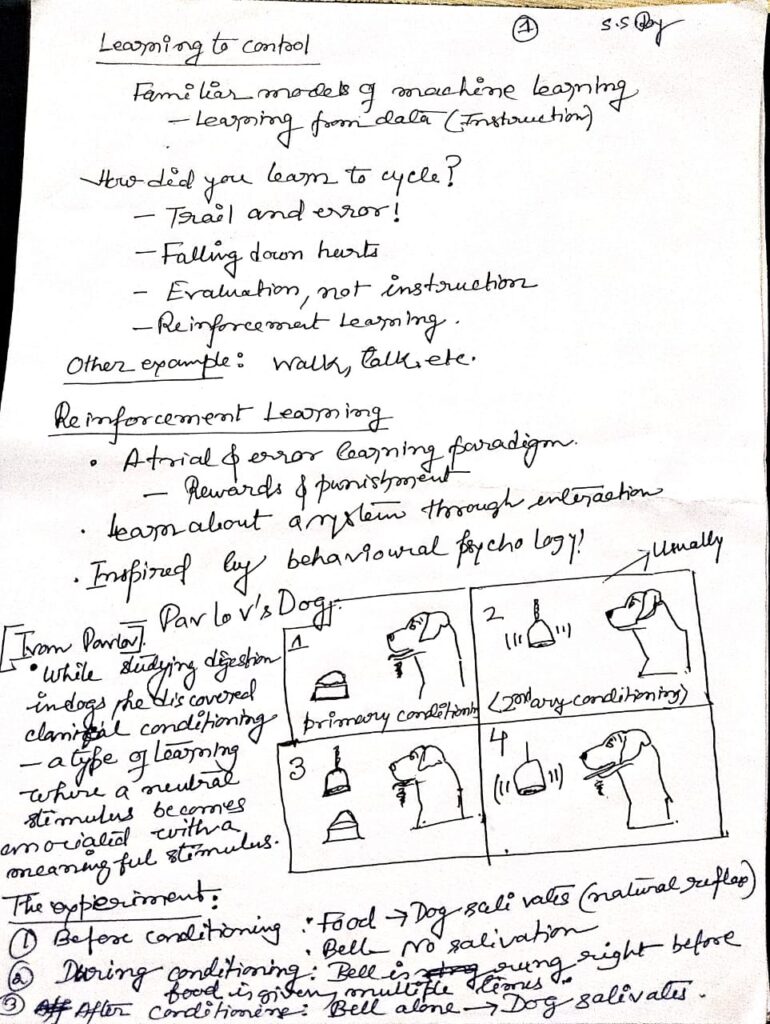 1
S.S Roy
Learning to control
Familiar models of machine learning
- Learning from data (Instruction)
How did you learn to cycle?
- Trail and error!
- Falling down hurts
- Evaluation, not instruction
- Reinforcement Learning.
Other example: Walk, talk, etc.
Reinforcement Learning
• A trial & error learning paradigm.
- Rewards & punishment
• Learn about a system through interaction
• Inspired by behavioural psychology!
Pavlov's Dog:
Usually
[Ivan Pavlov].
• While studying digestion
in dogs, he discovered
classical conditioning
- a type of learning
where a neutral
stimulus becomes
associated with a
meaningful stimulus.
1
primary conditioning
2
(2ndary conditioning)
3
4
The experiment:
① Before conditioning: • Food → Dog salivates (natural reflex)
• Bell No salivation
② During conditioning: Bell is rung right before
food is given, multiple times.
③ After conditioning: Bell alone → Dog salivates.